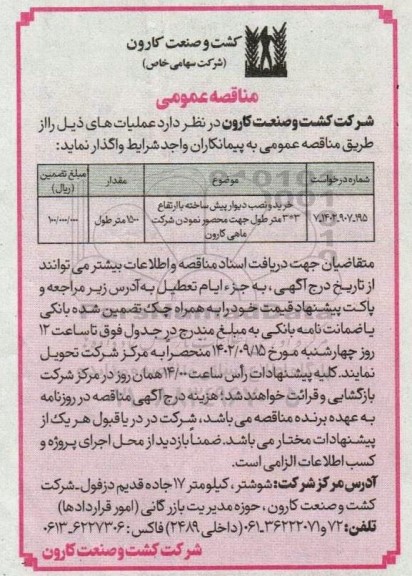 کشت و صنعت کارون
(شرکت سهامی خاص)
مناقصه عمومی
شرکت کشت و صنعت کارون در نظر دارد عملیات های ذیل را از
طریق مناقصه عمومی به پیمانکاران واجد شرایط واگذار نماید:
شماره درخواست موضوع مقدار مبلغ تضمین (ریال)
خرید و نصب دیوار پیش ساخته با ارتفاع
۷.۱۴۰۲.۹۰۷.۱۹۵ ۳*۳ متر طول جهت محصور نمودن شرکت ۱۵۰۰ متر طول ۱۰۰/۰۰۰/۰۰۰
ماهی کارون
متقاضیان جهت دریافت اسناد مناقصه و اطلاعات بیشتر می توانند
از تاریخ درج آگهی، به جزء ایام تعطیل به آدرس زیر مراجعه و
پاکت پیشنهاد قیمت خود را به همراه چک تضمین شده بانکی
یا ضمانت نامه بانکی به مبلغ مندرج در جدول فوق تا ساعت ۱۲
روز چهارشنبه مورخ ۱۴۰۲/۰۹/۱۵ منحصرا به مرکز شرکت تحویل
نمایند. کلیه پیشنهادات رأس ساعت ۱۴/۰۰ همان روز در مرکز شرکت
بازگشایی و قرائت خواهند شد؛ هزینه درج آگهی مناقصه در روزنامه
به عهده برنده مناقصه می باشد، شرکت در رد یا قبول هر یک از
پیشنهادات مختار می باشد. ضمناً بازدید از محل اجرای پروژه و
کسب اطلاعات الزامی است.
آدرس مرکز شرکت: شوشتر، کیلومتر ۱۷ جاده قدیم دزفول ـ شرکت
کشت و صنعت کارون، حوزه مدیریت بازرگانی (امور قراردادها)
تلفن: ۷۲ و ۳۶۲۲۲۰۷۱-۰۶۱ (داخلی ۲۴۸۹) فاکس: ۶۲۲۷۳۰۶-۰۶۱۳
شرکت کشت و صنعت کارون